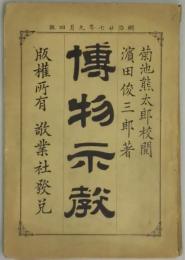 明治廿七年九月四版
菊池熊太郎校閲
濱田俊三郎著
博物示教
版權所有 敬業社發兌